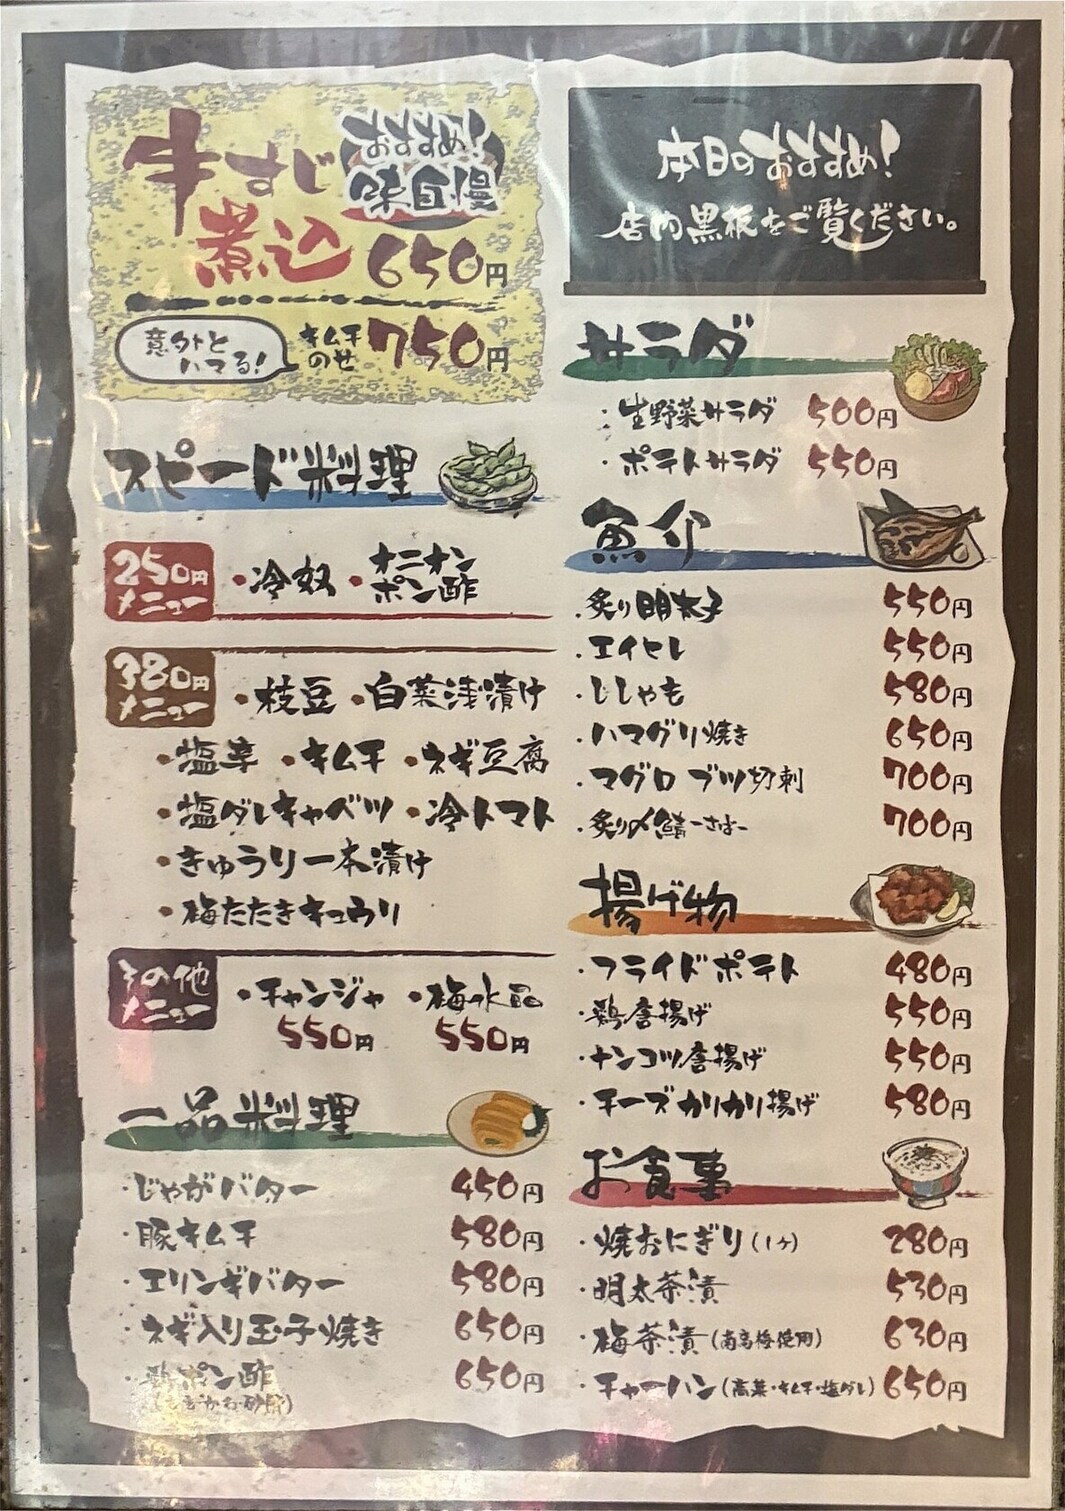 牛すじ
煮込
おすすめ!
味自慢
650円
意外と
ハマる!
キムチ
のせ
750円
スピード料理
250円
メニュー
・冷奴
・オニオン
ポン酢
380円
メニュー
・枝豆 ・白菜浅漬け
・塩辛 ・キムチ ・ネギ豆腐
・塩ダレキャベツ ・冷トマト
・きゅうり一本漬け
・梅たたきキュウリ
その他
メニュー
・チャンジャ ・梅水晶
550円 550円
一品料理
・じゃがバター 450円
・豚キムチ 580円
・エリンギバター 580円
・ネギ入り玉子焼き 650円
・鶏ポン酢 650円
本日のおすすめ!
店内黒板をご覧ください。
サラダ
・生野菜サラダ 500円
・ポテトサラダ 550円
魚介
・炙り明太子 550円
・エイヒレ 550円
・ししゃも 580円
・ハマグリ焼き 650円
・マグロ ブツ切刺 700円
・炙り〆鯖-さば- 700円
揚げ物
・フライドポテト 480円
・鶏唐揚げ 550円
・ナンコツ唐揚げ 550円
・チーズカリカリ揚げ 580円
お食事
・焼おにぎり(1ヶ) 280円
・明太茶漬 530円
・梅茶漬(南高梅使用) 630円
・チャーハン(高菜・キムチ・塩ダレ) 650円